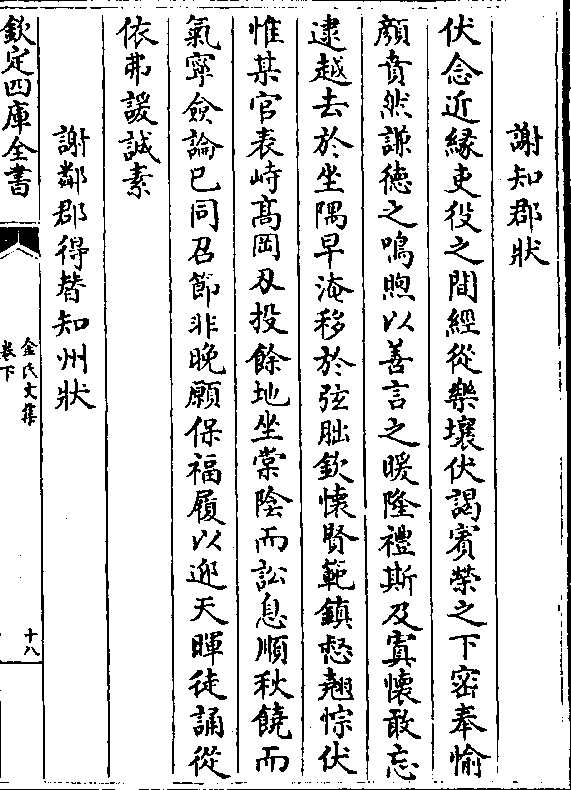 謝知郡狀
伏念近縁吏役之間經從樂壤伏謁賓榮之下密奉愉
顔賁然謙徳之鳴煦以善言之暖隆禮斯及寘懐敢忘
逮越去於坐隅早淹移於弦朏欽懐賢範鎮愁翹悰伏
惟某官表峙髙岡刃投餘地坐棠陰而訟息順秋饒而
氣寧僉論已同召節非晚願保福履以迎天暉徒誦從
依弗諼誠素
謝鄰郡得替知州狀
欽定四庫全書
金氏文集
卷下
十八